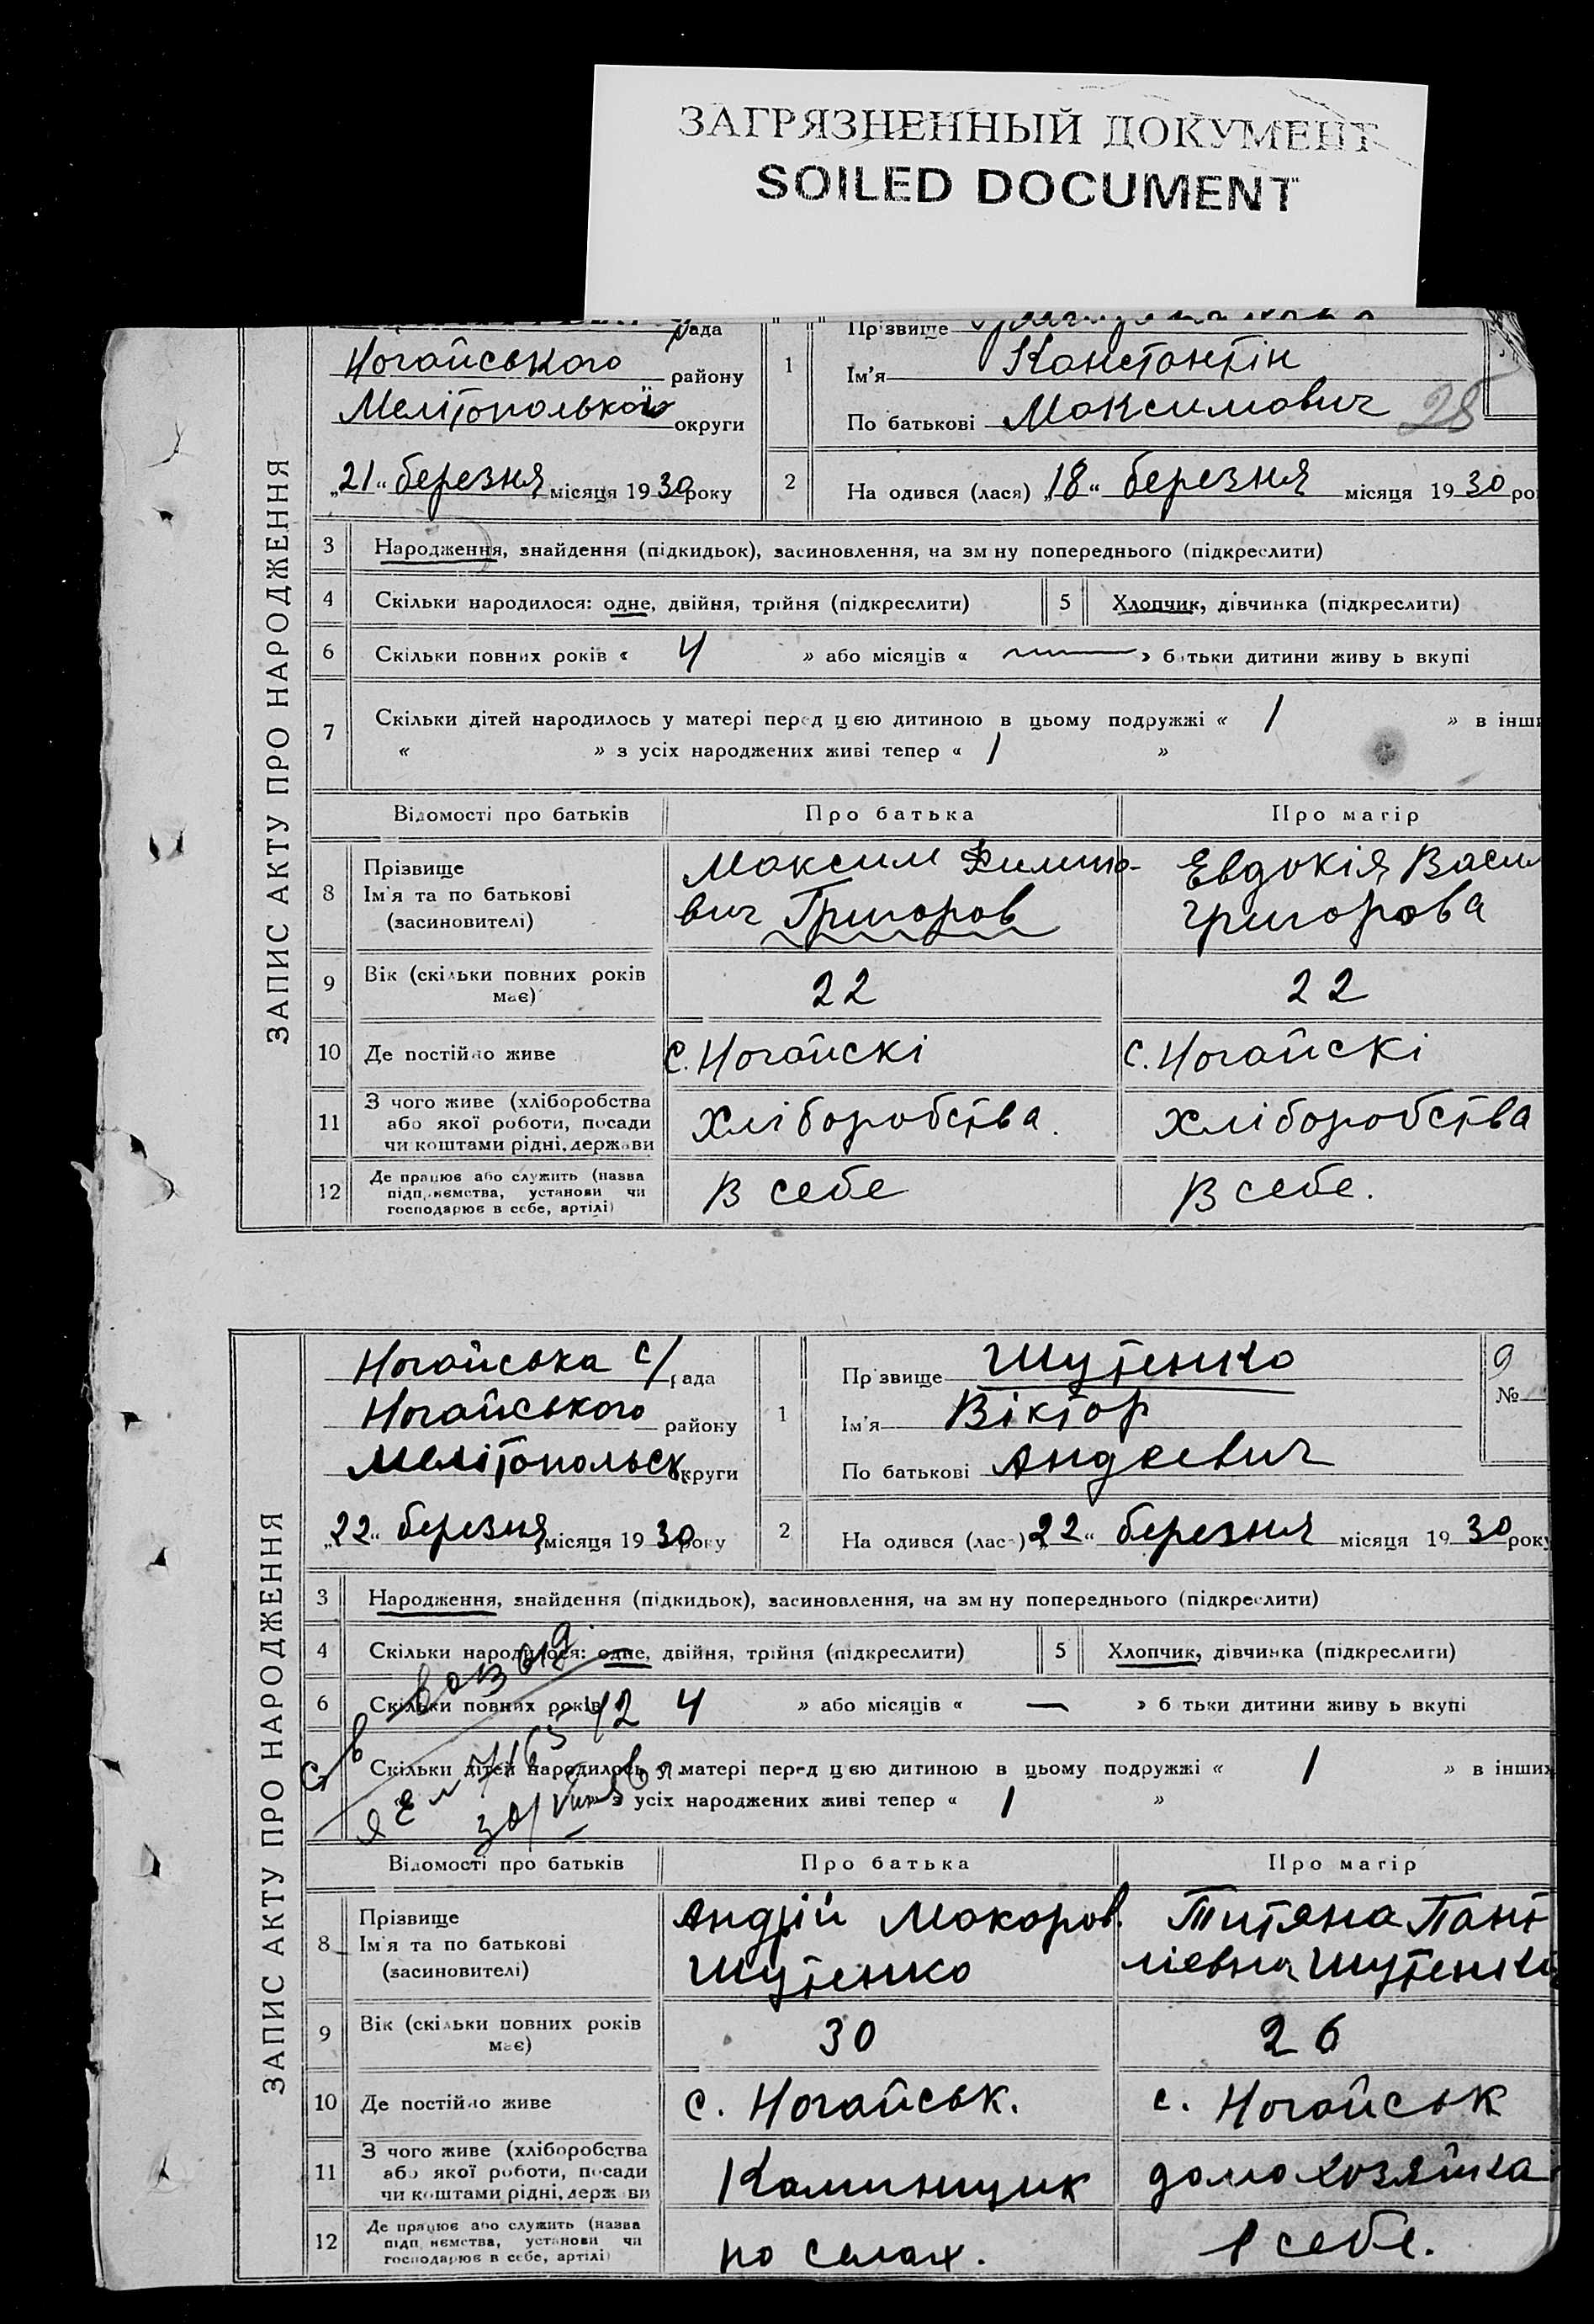 ЗАГРЯЗНЕННЫЙ ДОКУМЕНТ
SOILED DOCUMENT
ЗАПИС АКТУ ПРО НАРОДЖЕННЯ
рада
Ногайського району
Мелітополької округи
„21“ березня місяця 1930 року
1
Прізвище
Ім'я Констонтін
По батькові Максимович
28
2 На одився (лася) „18“ березня місяця 1930 ро
3 Народження, знайдення (підкидьок), засиновлення, на зм ну попереднього (підкреслити)
4 Скільки народилося: одне, двійня, трійня (підкреслити) 5 Хлопчик, дівчинка (підкреслити)
6 Скільки повних років « 4 » або місяців « — » б тьки дитини живу ь вкупі
7 Скільки дітей народилось у матері перед цією дитиною в цьому подружжі « 1 » в інши
« » з усіх народжених живі тепер « 1 »
Відомості про батьків Про батька Про матір
8 Прізвище
Ім'я та по батькові
(засиновителі)
Максим
вич Григоров
Евдокія Васил
Григорова
9 Вік (скільки повних років
має)
22 22
10 Де постійно живе с. Ногайскі с. Ногайскі
11 З чого живе (хліборобства
або якої роботи, посади
чи коштами рідні, держави
хліборобства. хліборобства
12 Де працює або служить (назва
підприємства, установи чи
господарює в себе, артілі)
в себе в себе.
ЗАПИС АКТУ ПРО НАРОДЖЕННЯ
Ногайська с/рада
Ногайського району
Мелітопольськ округи
„22“ березня місяця 1930 року
1
Пр звище Шутенко
Ім'я Віктор
По батькові Андреевич
9
№
2 На одився (лас ) „22“ березня місяця 1930 року
3 Народження, знайдення (підкидьок), засиновлення, на зм ну попереднього (підкреслити)
4 Скільки народилося: одне, двійня, трійня (підкреслити) 5 Хлопчик, дівчинка (підкреслити)
6 Скільки повних років 4 » або місяців « — » б тьки дитини живу ь вкупі
Скільки дітей народилось у матері перед цією дитиною в цьому подружжі « 1 » в інших
з усіх народжених живі тепер « 1 »
Відомості про батьків Про батька Про матір
8 Прізвище
Ім'я та по батькові
(засиновителі)
Андрій Макаров.
Шутенко
Титяна Пант
ліевна Шутенко
9 Вік (скільки повних років
має)
30 26
10 Де постійно живе с. Ногайськ. с. Ногайськ
11 З чого живе (хліборобства
або якої роботи, посади
чи коштами рідні, держ ви
Каминщик домохозяйка
12 Де працює або служить (назва
підп иємства, установи чи
господарює в себе, артілі)
по селах. в себе.